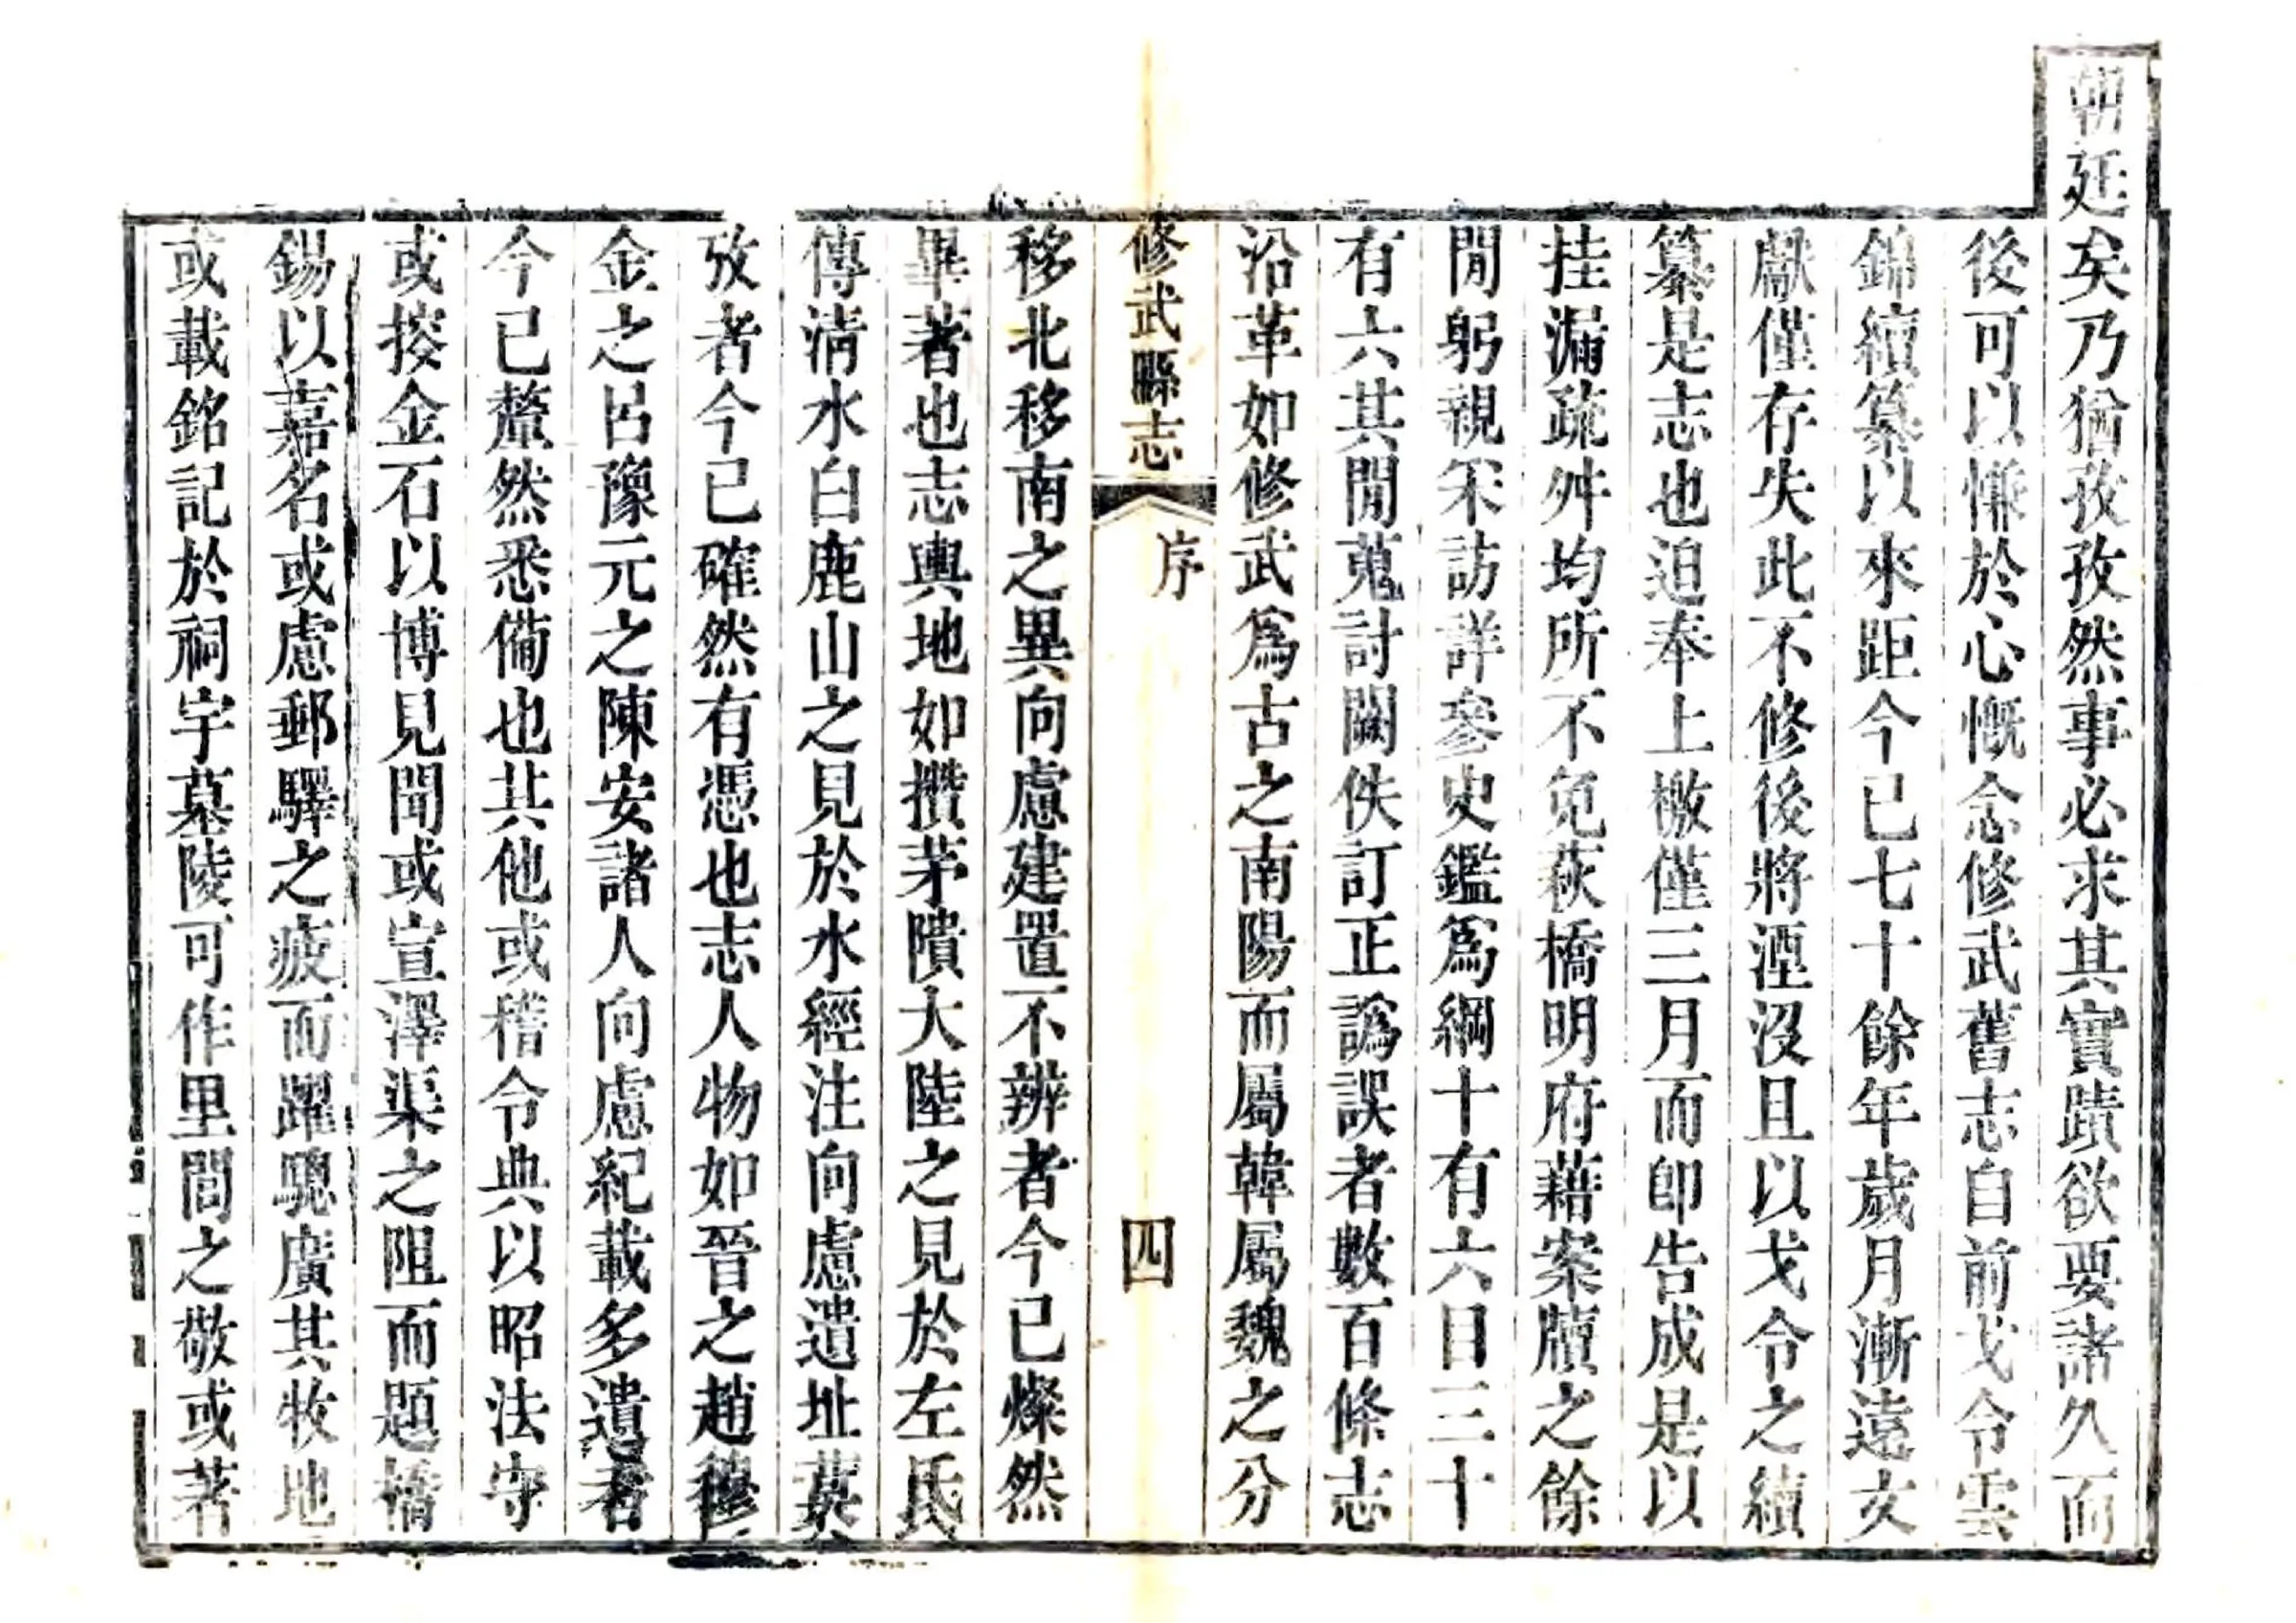 朝廷矣乃猶孜孜然事必求其實蹟欲要諸久而
後可以慊於心慨念修武舊志自前戈令雲
錦續纂以來距今已七十餘年歲月漸遠文
獻僅存失此不修後將湮沒且以戈令之續
纂是志也迫奉上檄僅三月而即告成是以
挂漏疏舛均所不免萩橋明府藉案牘之餘
閒躬親采訪詳參史鑑爲綱十有六目三十
有六其閒蒐討闕佚訂正譌誤者數百條志
沿革如修武爲古之南陽而屬韓屬魏之分
修武縣志
序
四
移北移南之異向慮建置不辨者今已燦然
畢著也志輿地如攢茅隤大陸之見於左氏
傳淸水白鹿山之見於水經注向慮遺址莫
攷者今已確然有憑也志人物如晉之趙穆
金之呂豫元之陳安諸人向慮紀載多遺者
今已釐然悉備也其他或稽令典以昭法守
或按金石以博見聞或宣澤渠之阻而題橋
錫以嘉名或慮郵驛之疲而躍驄廣其牧地
或載銘記於祠宇墓陵可作里閭之敬或著